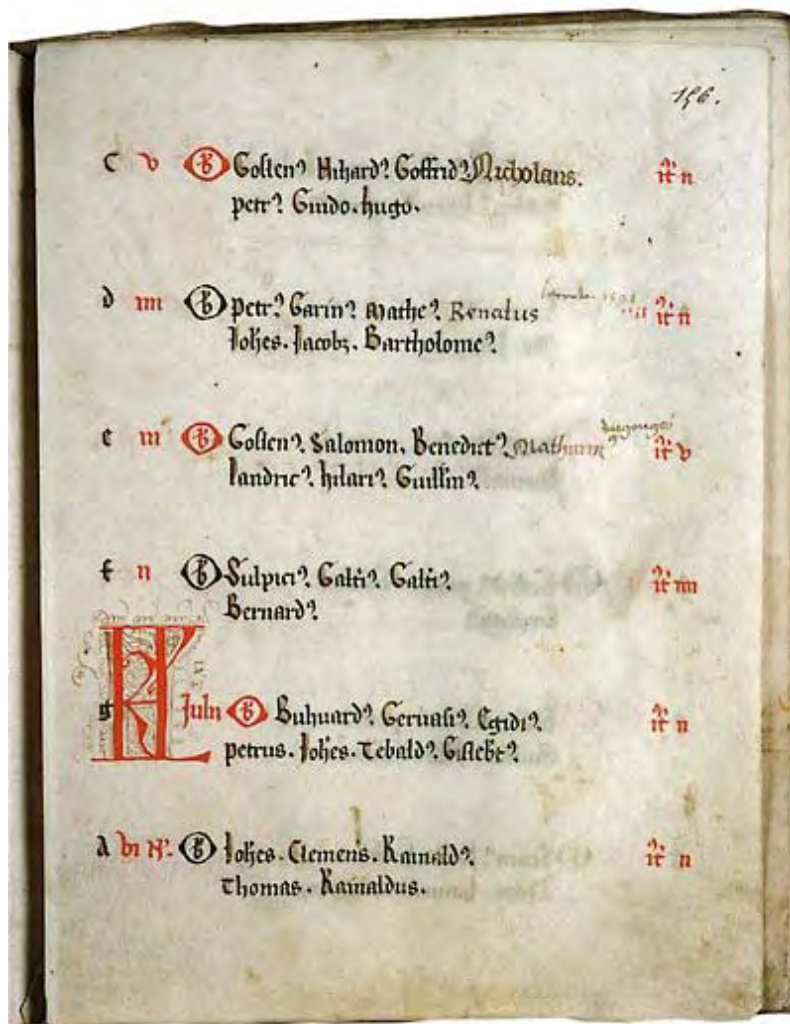 156.
c v Gosten⁹ Hihard⁹ Goffrid⁹ Nicholaus. it n
petr⁹ Guido. hugo.
d iiii petr⁹ Garin⁹ Mathe⁹ Renatus it n
Iohes. Iacobz. Bartholome⁹
e iii Gosten⁹. Salomon. Benedict⁹ Mathurin⁹ it v
landric⁹. hilari⁹. Guillm⁹.
f ii Sulpici⁹. Galti⁹. Galti⁹. it iiii
Bernard⁹
g KL Iulii Buhuard⁹. Geruasi⁹. Egidi⁹. it n
petrus. Iohes. Tebald⁹. Gislebt⁹.
A vi N. Iohes. Clemens. Rainald⁹. it n
Thomas. Rainaldus.